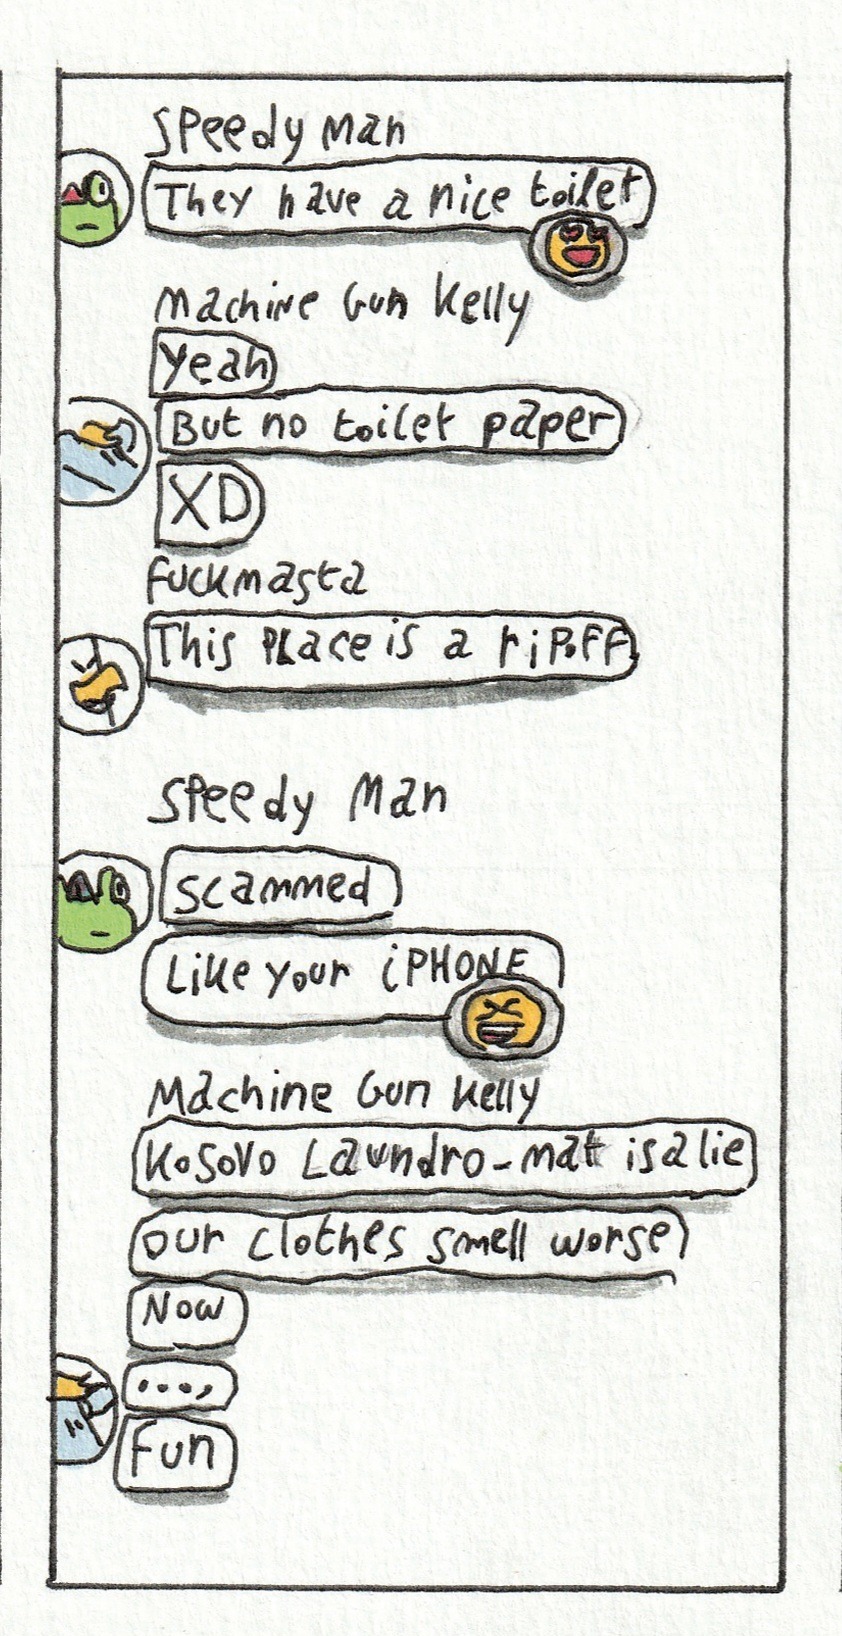 Speedy Man
They have a nice toilet
Machine Gun Kelly
Yeah
But no toilet paper
XD
Fuckmasta
This Place is a ripoff
Speedy Man
scammed
Like your iPHONE
Machine Gun Kelly
Kosovo Laundro-mat is a lie
our clothes smell worse
Now
...,
Fun